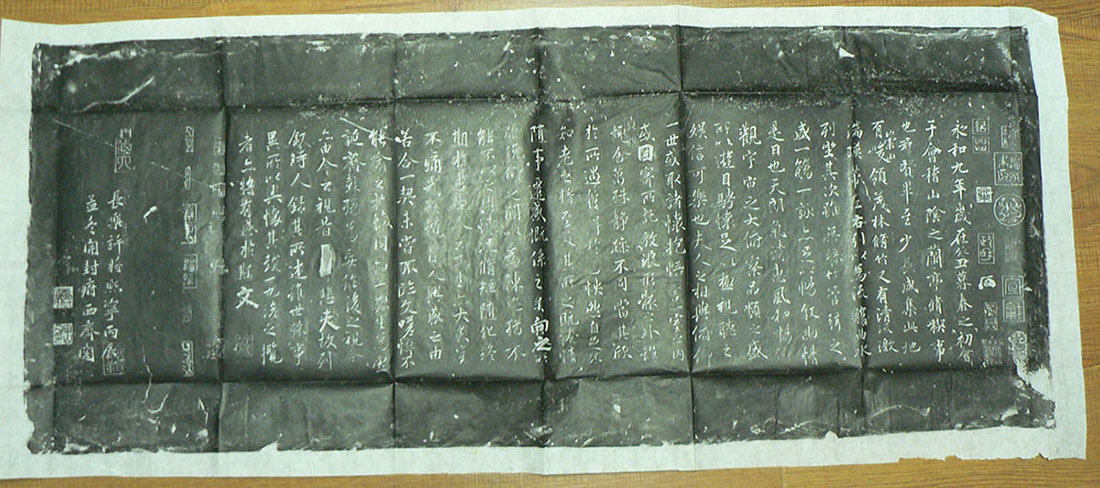 永和九年歲在癸丑暮春之初會
于會稽山陰之蘭亭脩稧事
也群賢畢至少長咸集此地
有崇山峻領茂林脩竹又有清流激
湍映帶左右引以為流觴曲水
列坐其次雖無絲竹管弦之
盛一觴一詠亦足以暢敘幽情
是日也天朗氣清惠風和暢仰
觀宇宙之大俯察品類之盛
所以遊目騁懷足以極視聽之
娛信可樂也夫人之相與俯仰
一世或取諸懷抱悟言一室之內
或因寄所託放浪形骸之外雖
趣舍萬殊靜躁不同當其欣
於所遇暫得於己快然自足不
知老之將至及其所之既惓情
隨事遷感慨係之矣向之
俛仰之間以為陳迹猶不
能不以之興懷況脩短隨化終
期於盡古人云死生亦大矣豈
不痛哉每攬昔人興感之由
若合一契未嘗不臨文嗟悼不
能喻之於懷固知一死生為虛
誕齊彭殤為妄作後之視今
亦由今之視昔悲夫故列
敘時人錄其所述雖世殊事
異所以興懷其致一也後之攬
者亦將有感於斯文
長樂許將熙寧丙辰
孟冬開封府西齋閱